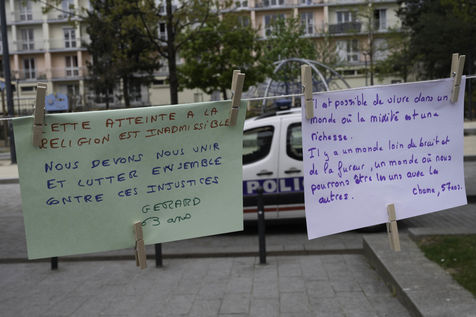 CETTE ATTEINTE A LA
RELIGION EST INADMISSIBLE
NOUS DEVONS NOUS UNIR
ET LUTTER ENSEMBLE
CONTRE CES INJUSTICES
GERARD
63 ans
Il est possible de vivre dans un
monde où la mixité est une
richesse.
Il y a un monde loin du bruit et
de la fureur, un monde où nous
pourrons être les uns avec les
autres.
57 ans.
POLI